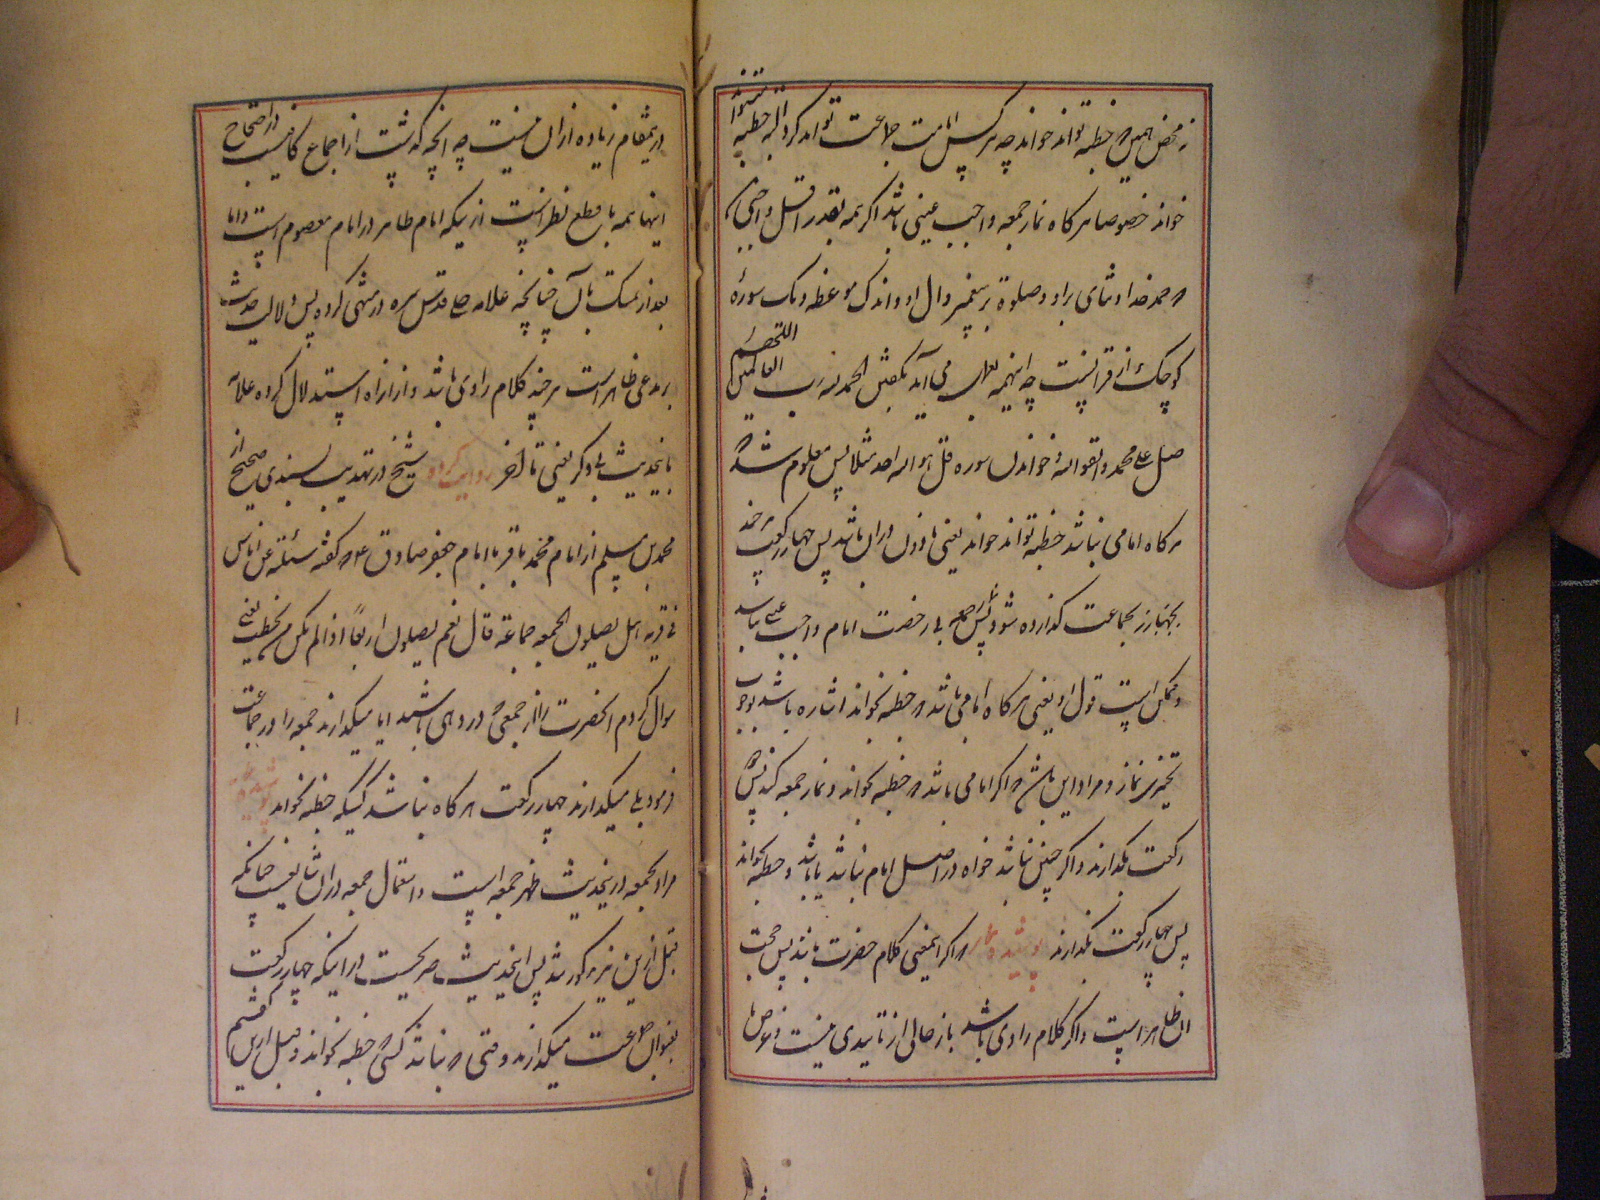 نه محض همین که خطبه تواند خواند چه هر کس امامت جماعت تواند کرد البته خطبه میتواند
خواند خصوصا هر گاه نماز جمعه واجب عینی باشد اگر همه بقدر اقل واجبی
که حمد خدا و ثنای بر او و صلوة بر پیغمبر و ال او و اندک موعظه و یک سورهٔ
کوچک از قرانست چه اینهمه بعمل می آید بگفتن الحمد لله رب العالمین اللهم
صل علی محمد و اتقوا الله و خواندن سوره قل هو الله احد مثلا پس معلوم شد که
هر گاه امامی نباشد که خطبه تواند خواند یعنی ماذون دران باشد پس چهار رکعت هر چند
بجماعت گذارده شود پس جمعه بی رخصت امام واجب عینی نباشد
و ممکن است قول او یعنی هر گاه امامی باشد که خطبه بخواند اشاره باشد بوجوب
تخییری نماز و مراد این باشد که اگر امامی باشد که خطبه بخواند و نماز جمعه کند پس
رکعت بگذارند و اگر چنین نباشد خواه در اصل امام نباشد یا باشد و خطبه نخواند
پس چهار رکعت بگذارند پوشیده نماند که اگر یعنی کلام حضرت باشد پس حجیت
ان ظاهر است و اگر کلام راوی باشد باز خالی از تاییدی نیست و غرض ما
در یمقام زیاده از ان نیست چه انچه گذشت از اجماع کافیست در احتجاج
اینها همه با قطع نظر است از نیکه امام ظاهر در امام معصوم است و اما
بعد از تمسک بآن چنانچه علامه حلی قدس سره در منتهی کرده پس دلالت حدیث
بر مدعی ظاهر است هر چند کلام راوی باشد و از انراه استدلال کرده علامه
باینحدیث بی ذکر یعنی تا آخر روایت کرده شیخ در تهذیب بسندی صحیح از
محمد بن مسلم از امام محمد باقر یا امام جعفر صادق ع که گفته سئلته عن اناس
فی قریه هل یصلون الجمعه جماعة قال نعم یصلون اربعاً اذا لم یکن من یخطب یعنی
سوال کردم انحضرت را از جمعی که در دهی باشند ایا میگذارند جمعه را در جماعت
فرمود بلی میگذارند چهار رکعت هر گاه نباشد کسیکه خطبه بخواند پوشیده نماند که
مراد بجمعه در ینحدیث ظهر جمعه است و استعمال جمعه دران شایعست چنانکه
قبل ازین نیز مذکور شد پس اینحدیث صریحست در اینکه چهار رکعت
بعنوان جماعت میگذارند وقتی که نباشد کسی که خطبه بخواند و قبل ازین گفتیم